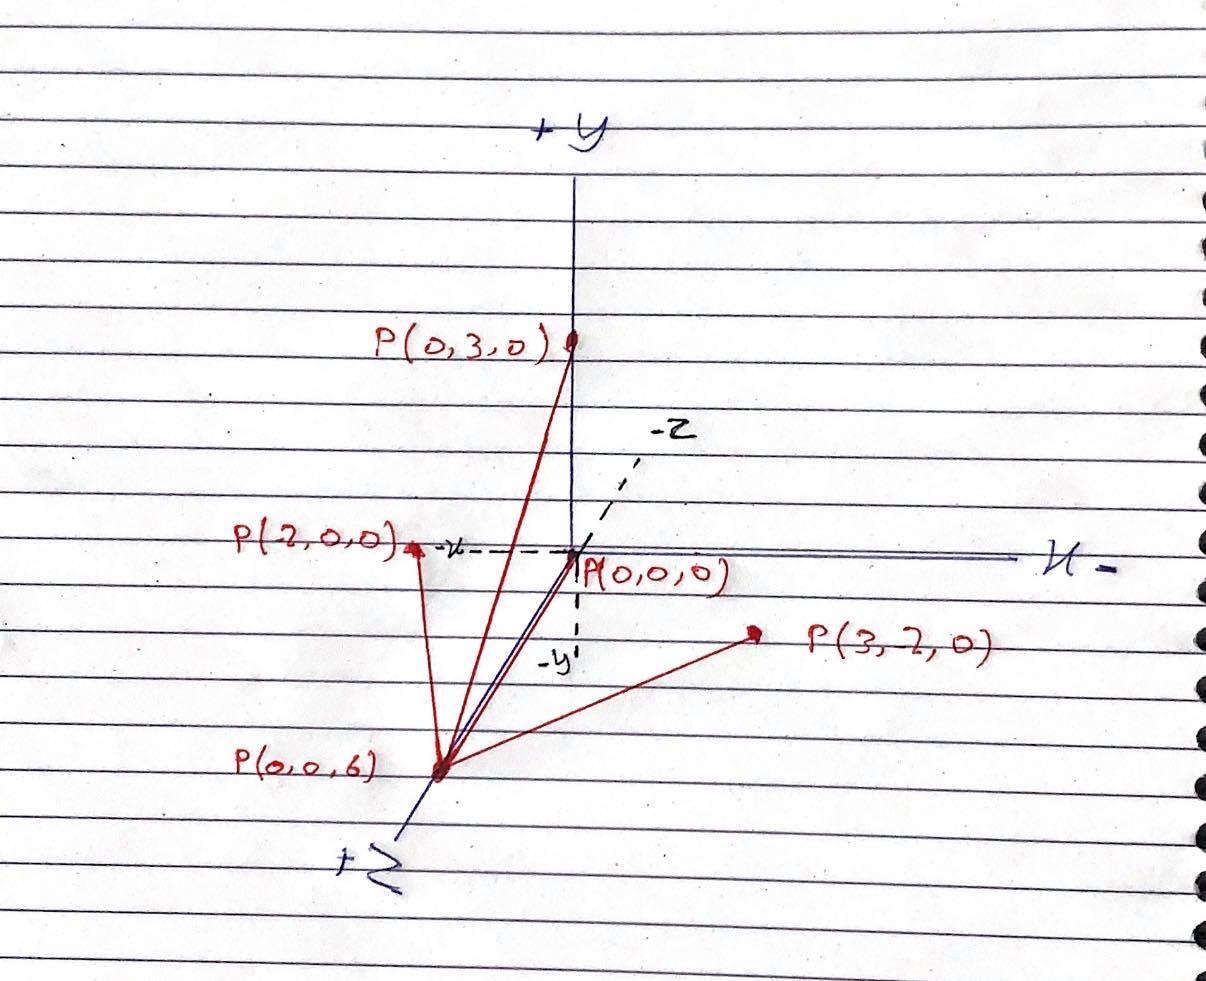 + y
P(0,3,0)
-z
P(-2,0,0)
-x
x -
P(0,0,0)
P(3,-2,0)
-y
P(0,0,6)
+z